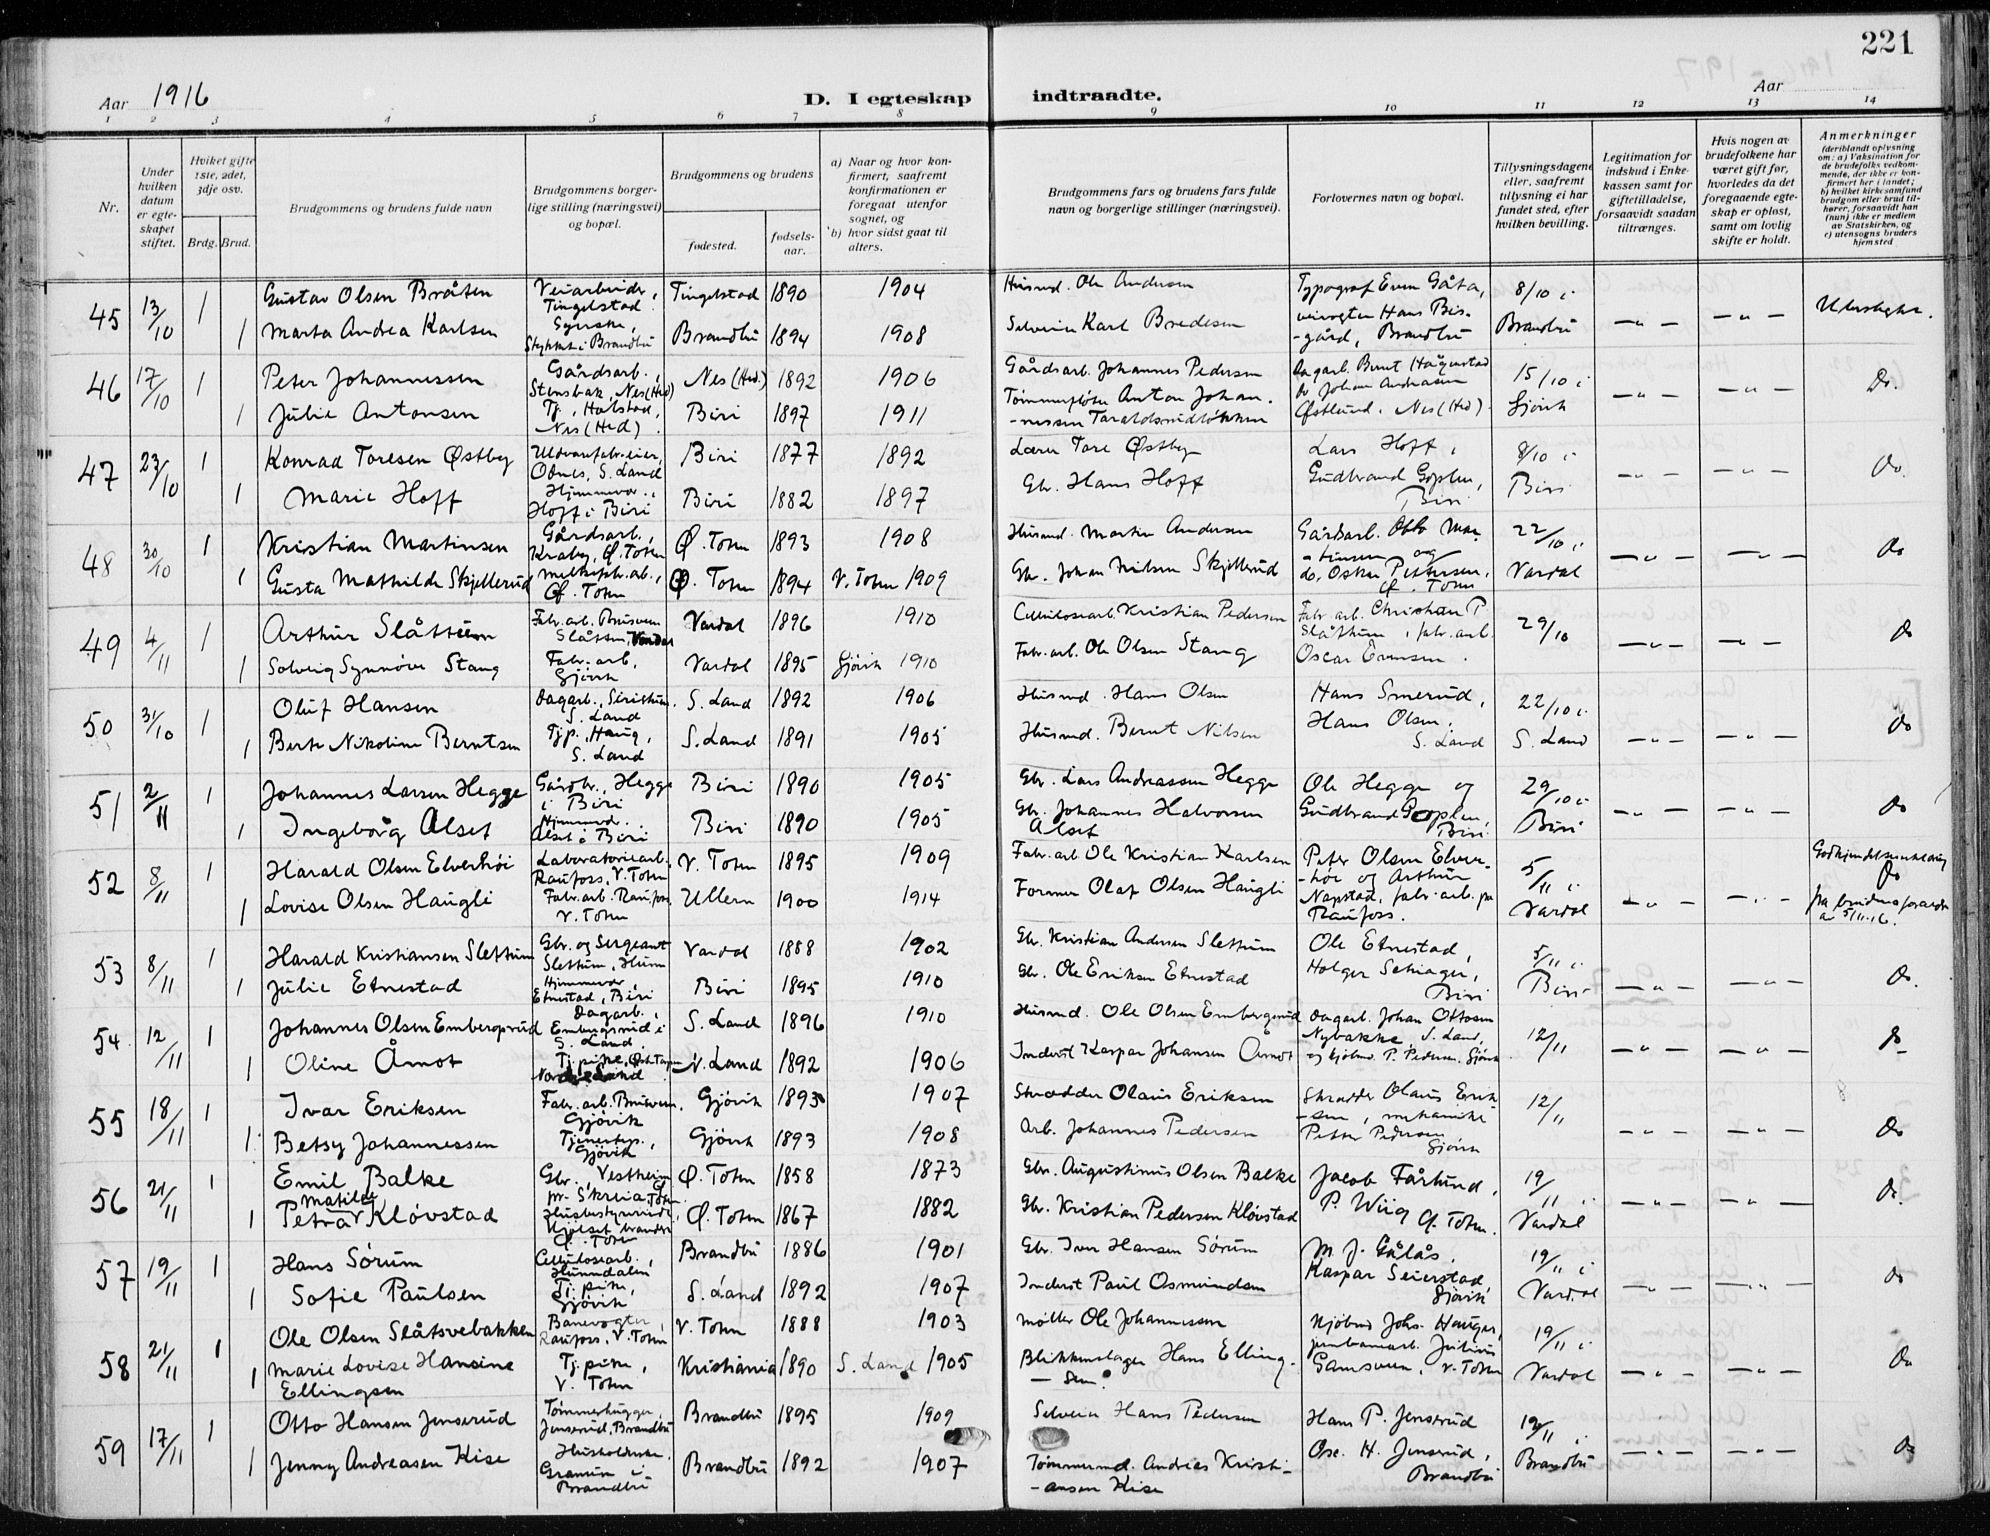 221
Aar 1916
D. I egteskap indtraadte.
Aar
1 2 3 4 5 6 7 8 9 10 11 12 13 14
Nr.
Under hvilken datum er egteskapet stiftet.
Hvilket gifte 1ste, 2det, 3dje osv.
Brdg. Brud.
Brudgommens og brudens fulde navn
Brudgommens borgerlige stilling (næringsvei) og bopæl.
Brudgommens og brudens
fødested.
fødselsaar.
a) Naar og hvor konfirmert, saafremt konfirmationen er foregaat utenfor sognet, og
b) hvor sidst gaat til alters.
Brudgommens fars og brudens fars fulde navn og borgerlige stillinger (næringsvei).
Forlovernes navn og bopæl.
Tillysningsdagene eller, saafremt tillysning ei har fundet sted, efter hvilken bevilling.
Legitimation for indskud i Enkekassen samt for giftetilladelse, forsaavidt saadan tiltrænges.
Hvis nogen av brudefolkene har været gift før, hvorledes da det foregaaende egteskap er opløst, samt om lovlig skifte er holdt.
Anmerkninger
(deriblandt oplysning om: a) Vaksination for de brudefolks vedkommende, der ikke er konfirmert her i landet; b) hvilket kirkesamfund brudgom eller brud tilhører, forsaavidt han (hun) ikke er medlem av Statskirken, og c) utensogns bruders hjemsted
45 13/10 1 Gustav Olsen Bråten Veiarbeider, Tingelstad Tingelstad 1890 1904 Husmd. Ole Andersen Typograf Even Gåta, 8/10 i
1 Marta Andrea Karlsen Syerske, Brandbu 1894 1908 Selveier Karl Bredesen veivogter Hans Bisgård, Brandbu Brandbu
46 17/10 1 Peter Johannessen Gårdsarb., Stensbak, Nes (Hed) Nes (Hed.) 1892 1906 Gårdsarb. Johannes Pedersen Dagarb. Bernt 15/10 i Do.
1 Julie Antonsen Tj., Halstad, Nes (Hed). Biri 1897 1911 Tømmerfløter Anton Johannessen do Johan Andreasen Østlund. Nes (Hed). Gjøvik
47 23/10 1 Konrad Toresen Østby Uldvarefabr.eier, Odnes, S. Land Biri 1877 1892 Lærer Tore Østby Lars Hoff, 8/10 i do.
1 Marie Hoff Hjemmevær., Hoff i Biri Biri 1882 1897 Gbr. Hans Hoff Gudbrand Goplen, Biri Biri
48 30/10 1 Kristian Martinsen Gårdsarb., Kraby, Ø. Toten Ø. Toten 1893 1908 Husmd. Martin Andersen Gårdsarb. Otto Martinsen og 22/10 i do
1 Gusta Mathilde Skjellerud Ø. Toten Ø. Toten 1894 V. Toten 1909 Gbr. Johan Nilsen Skjellerud do. Oskar Pettersen, Ø. Toten Vardal
49 4/11 1 Arthur Slåttum Fabr. arb. Slåttum, Vardal Vardal 1896 1910 Cellulosearb. Kristian Pedersen Fabr. arb. Christian P. Slåttum, fabr. arb. 29/10 do
1 Solveig Synnøve Stang Fabr. arb, Gjøvik Vardal 1895 Gjøvik 1910 Fabr. arb. Ole Olsen Stang Oscar Evensen.
50 31/10 1 Oluf Hansen Dagarb., S. Land S. Land 1892 1906 Husmd. Hans Olsen Hans Smerud, 22/10 i do
1 Berte Nikoline Berntsen Tjp., Haug, S. Land S. Land 1891 1905 Husmd. Bernt Nilsen Hans Olsen, S. Land S. Land
51 2/11 1 Johannes Larsen Hegge Gårdbr., Hegge i Biri Biri 1890 1905 Gbr. Lars Andreassen Hegge Ole Hegge og 29/10 i do
1 Ingeborg Alset Hjemmevær. Alset i Biri Biri 1890 1905 Gbr. Johannes Halvorsen Alset Gudbrand Goplen, Biri Biri
52 8/11 1 Harald Olsen Elverhøi Laboratoriearb. Raufoss, V. Toten V. Toten 1895 1909 Fabr. arb. Ole Kristian Karlsen Peter Olsen Elverhøi og Arthur 5/11 i do
1 Lovise Olsen Haugli Fabr. arb. Raufoss, V. Toten Ullern 1900 1914 Former Olaf Olsen Haugli Napstad, fabr. arb. på Raufoss. Vardal fra brudens forældre av 5/11 16.
53 8/11 1 Harald Kristiansen Slettum Gbr. og Sergeant Slettum, Hunn Vardal 1888 1902 Gbr. Kristian Andersen Slettum Ole Etnestad, 5/11 i do.
1 Julie Etnestad Hjemmevær, Etnestad, Biri Biri 1895 1910 Gbr. Ole Eriksen Etnestad Holger Seviager, Biri Biri
54 12/11 1 Johannes Olsen Embergsrud Dagarb., Embergsrud i S. Land. S. Land 1896 1910 Husmd. Ole Olsen Embergsrud Dagarb. Johan Ottosen 12/11 do
1 Oline Åmot Tj. pike, N. Land 1892 1906 Inderst Kaspar Johansen Åmot Nybakke, S. Land, og kjøbmd. P. Pedersen. Gjøvik
55 18/11 1 Ivar Eriksen Fabr. arb. Gjøvik Gjøvik 1893 1907 Skrædder Olaus Eriksen Skrædder Olaus Eriksen, mekaniker 12/11 do
1 Betsy Johannessen Tjenestep., Gjøvik Gjøvik 1893 1908 Arb. Johannes Pedersen Petter Pedersen Gjøvik
56 21/11 1 Emil Balke Gbr., Vestheim pr. Skreia Ø. Toten Ø. Toten 1858 1873 Gbr. Augustinus Olsen Balke Jacob Fårlund, 19/11 i do.
1 Petra Matilde Kløvstad Husbestyrerinde, Ø. Toten Ø. Toten 1867 1882 Gbr. Kristian Pedersen Kløvstad P. Wiig Ø. Toten. Vardal
57 19/11 1 Hans Sørum Cellulosearb., Hunndalen Brandbu 1886 1901 Gbr. Iver Hansen Sørum M. J. Gålås, 19/11 i do
1 Sofie Paulsen Tj. pike, Gjøvik S. Land 1892 1907 Inderst Paul Osmundsen Kaspar Seierstad, Gjøvik Vardal
58 21/11 1 Ole Olsen Slåtsvebakken Banevogter, Raufoss, V. Toten V. Toten 1888 1903 Møller Ole Johannessen Kjøbmd Johs. Hauger, 19/11 i do
1 Marie Lovise Hansine Ellingsen Tj. pike, V. Toten Kristiania 1890 S. Land 1905 Blikkenslager Hans Ellingsen. jernbanearb. Julius Gamsveen, V. Toten Vardal
59 17/11 1 Otto Hansen Jenserud Tømmerhugger, Jenserud, Brandbu Brandbu 1895 1909 Selveier Hans Pedersen Hans P. Jenserud 12/11 i do
1 Jenny Andreasen Kise Husholderske Granum i Brandbu Brandbu 1892 1907 Tømmermd. Andreas Kristiansen Kise Osc. H. Jenserud, Brandbu Brandbu